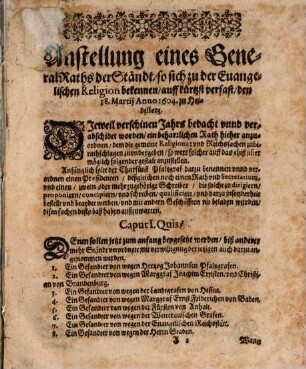 Anstellung eines Gene-
ralRaths der Ständt / so sich zu der Euange-
lischen Religion bekennen / auff kürtzst verfast / den
18. Martij Anno 1604. zu Hei-
delberg.
DJeweil verschinen Jahrs bedacht vnnd ver-
abschidet worden / ein beharrlichen Rath hieher anzu-
ordnen / dem die gemeine Religions: vnd Reichssachen zu
rathschlagen zu vndergeben / so werde solcher auff das ehist jmer
möglich folgender gestalt anzustellen.
Anfänglich solle der Churfürst Pfaltzgraf darzu benennen vnd ver-
ordnen einen Presidenten / deßgleichen noch einen Rath vnd Secretarium,
vnd einen / zween oder mehr zugehörige Schreiber / die solche zu dirigieren
proponieren / concipieren / vnd schreiben / qualificirt / vnd darzu insonderheit
bestelt vnd begabet werden / vnd mit andern Geschäfften nit beladen wurden /
disen sachen desto baß haben außzuwarten.
Caput I. Quis?
DEnen sollen jetzt zum anfang beygesetzt werden / biß anderer
mehr Ständt verordnete mit verwilligung der jetzigen auch darzu an-
genommen werden.
1. Ein Gesandter von wegen Hertzog Johannsen Pfaltzgrafen.
2. Ein Gesandter von wegen Marggraf Joachim Ernsten / vnd Christi-
an von Brandenburg.
3. Ein Gesandter von wegen der Landtgrafen von Hessen.
4. Ein Gesandter von wegen Marggraf Ernst Friderichen von Baden.
5. Ein Gesandter von wegen der Fürsten von Anhalt.
6. Ein Gesandter von wegen der Wetterauischen Grafen.
7. Ein Gesandter von wegen der Euangelischen Reichsstätt.
8. Ein Gesandter von wegen der Herrn Staden.
Wann